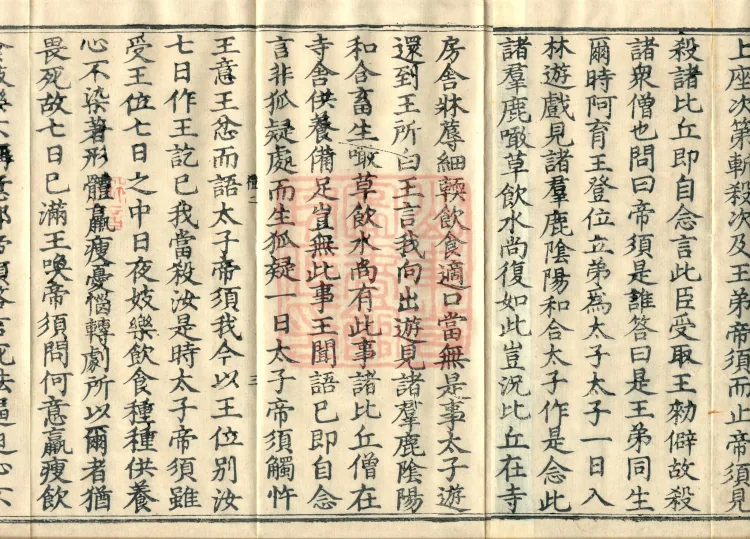 上座次第斬殺次及王弟帝須而止帝須見
殺諸比丘即自念言此臣受取王勑僻故殺
諸衆僧也問曰帝須是誰答曰是王弟同生
爾時阿育王登位立弟為太子太子一日入
林遊戲見諸羣鹿陰陽和合太子作是念此
諸羣鹿噉草飲水尚復如此豈況比丘在寺
房舍牀蓐細輭飲食適口當無是事太子遊
還到王所白王言我向出遊見諸羣鹿陰陽
和合畜生噉草飲水尚有此事諸比丘僧在
寺舍供養備足豈無此事王聞語已即自念
言非狐疑處而生狐疑一日太子帝須觸忤
禮二 三
王意王忿而語太子帝須我今以王位別汝
七日作王訖已我當殺汝是時太子帝須雖
受王位七日之中日夜妓樂飲食種種供養
心不染著形體羸瘦憂惱轉劇所以爾者猶
畏死故七日已滿王喚帝須問何意羸瘦飲
食妓樂不稱意耶帝須答言死法逼迫心不